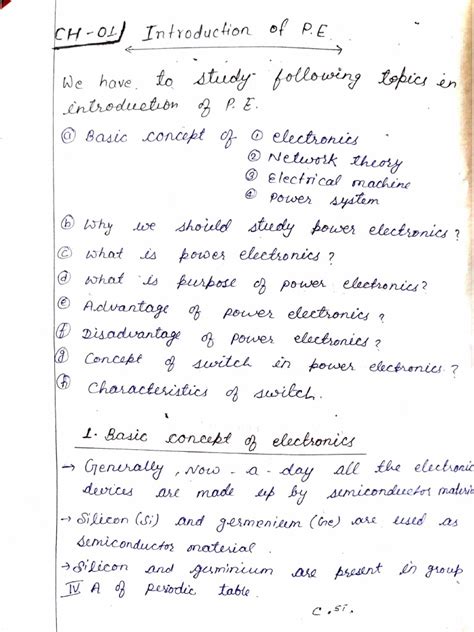 CH-01) Introduction of P.E.
We have to study following topics in
introduction of P.E.
ⓐ Basic concept of ① electronics
② Network theory
③ Electrical machine
④ Power system
ⓑ Why we should study power electronics?
ⓒ what is power electronics?
ⓓ what is purpose of power electronics?
ⓔ Advantage of power electronics?
ⓕ Disadvantage of power electronics?
ⓖ Concept of switch in power electronics?
ⓗ Characteristics of switch.
1. Basic concept of electronics
→ Generally, Now-a-day all the electronic
devices are made up by semiconductor material
→ Silicon (Si) and germenium (Ge) are used as
semiconductor material.
→ Silicon and germinium are present in group
IV A of periodic table.
C. Si.